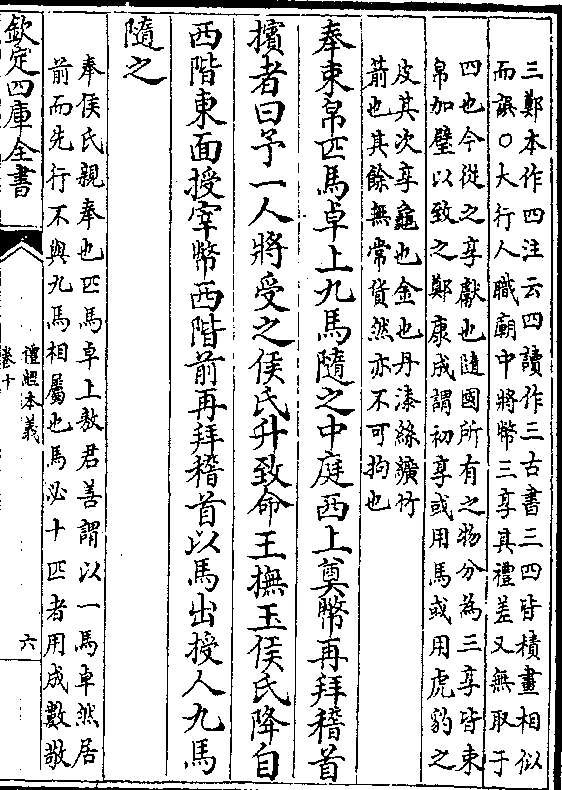 三鄭本作四注云四讀作三古書三四皆積畫相似
而誤○大行人職廟中將幣三享其禮差又無取于
四也今從之享獻也隨國所有之物分為三享皆束
帛加璧以致之鄭康成謂初享或用馬或用虎豹之
皮其次享龜也金也丹漆絲纊竹
箭也其餘無常貨然亦不可拘也
奉束帛匹馬卓上九馬隨之中庭西上奠幣再拜稽首
擯者曰予一人將受之侯氏升致命王撫玉侯氏降自
西階東面授宰幣西階前再拜稽首以馬出授人九馬
隨之
奉侯氏親奉也匹馬卓上敖君善謂以一馬卓然居
前而先行不與九馬相屬也馬必十匹者用成數敬
欽定四庫全書
禮經本義
卷十
六